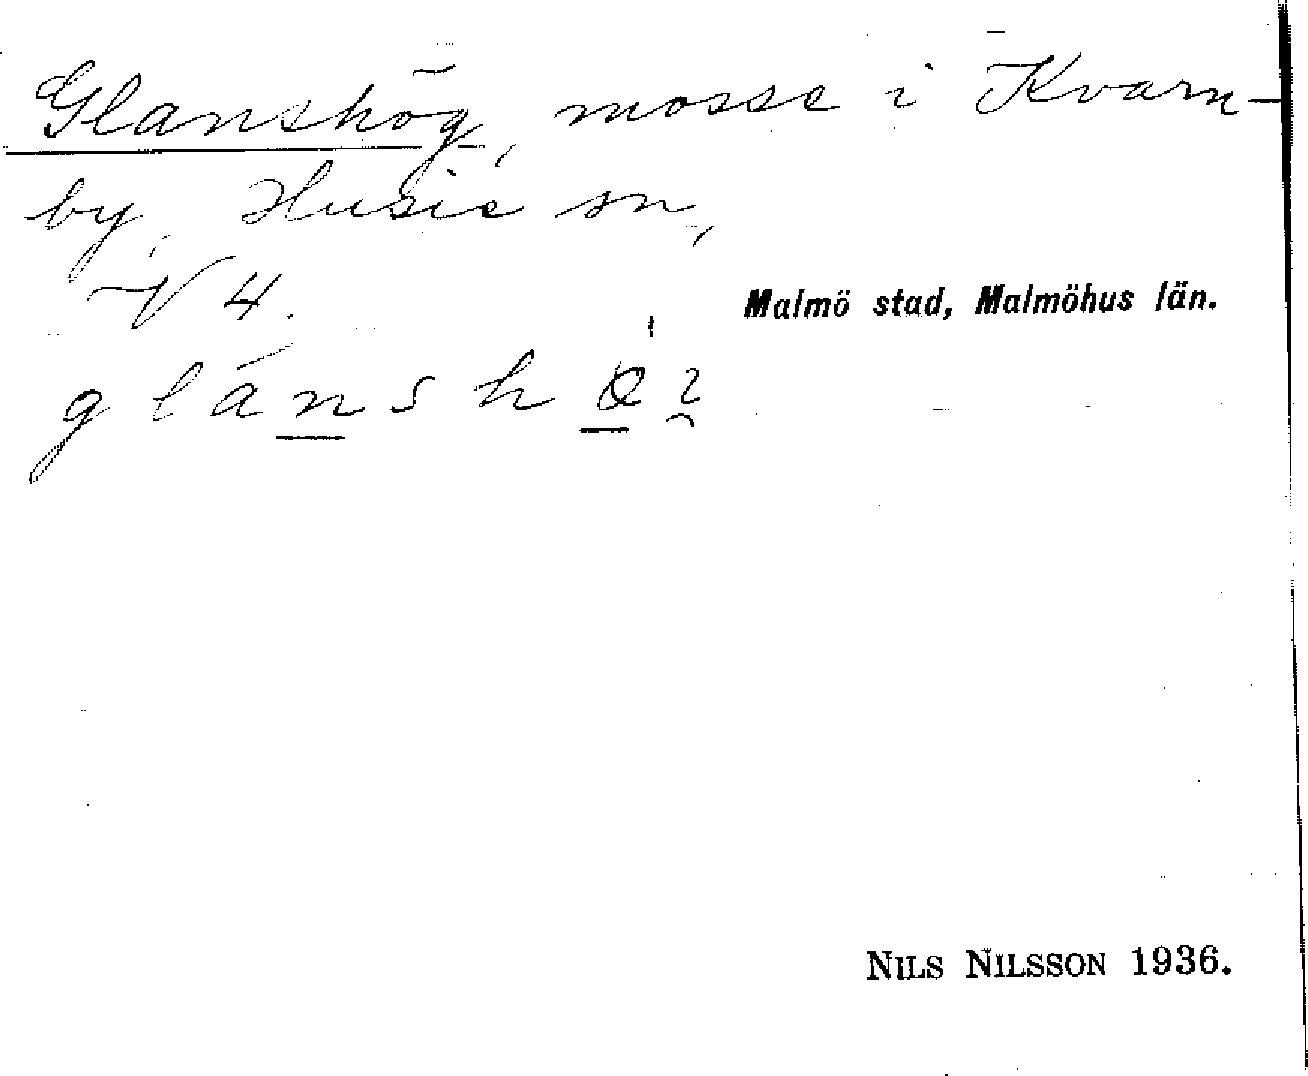 Glanshög, mosse i Kvarn-
by, Husie sn,
V 4.
Malmö stad, Malmöhus län.
NILS NILSSON 1936.